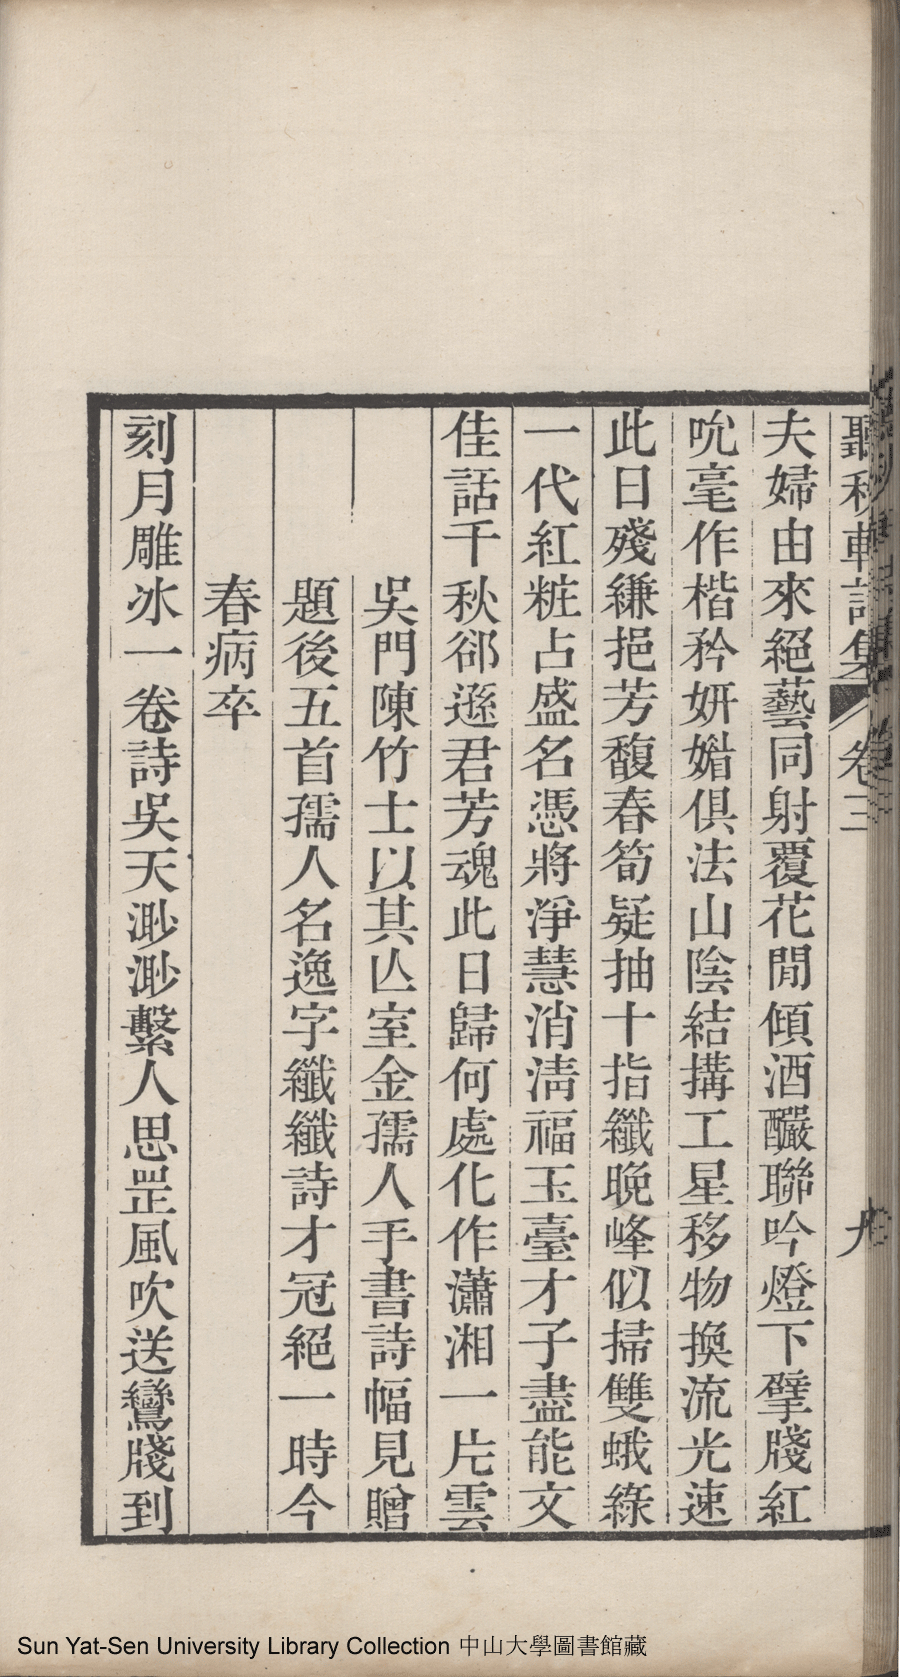 聽秋軒詩集 卷三 九
夫婦由來絕藝同射覆花閒傾酒釅聯吟燈下擘牋紅
吮毫作楷矜妍媘俱法山陰結搆工星移物換流光速
此日殘縑挹芳馥春筍疑抽十指纖晚峰似掃雙蛾綠
一代紅粧占盛名憑將淨慧消淸福玉臺才子盡能文
佳話千秋卻遜君芳魂此日歸何處化作瀟湘一片雲
吳門陳竹士以其亾室金孺人手書詩幅見贈
題後五首孺人名逸字纖纖詩才冠絕一時今
春病卒
刻月雕冰一卷詩吳天渺渺繫人思罡風吹送鸞牋到
Sun Yat-Sen University Library Collection 中山大學圖書館藏